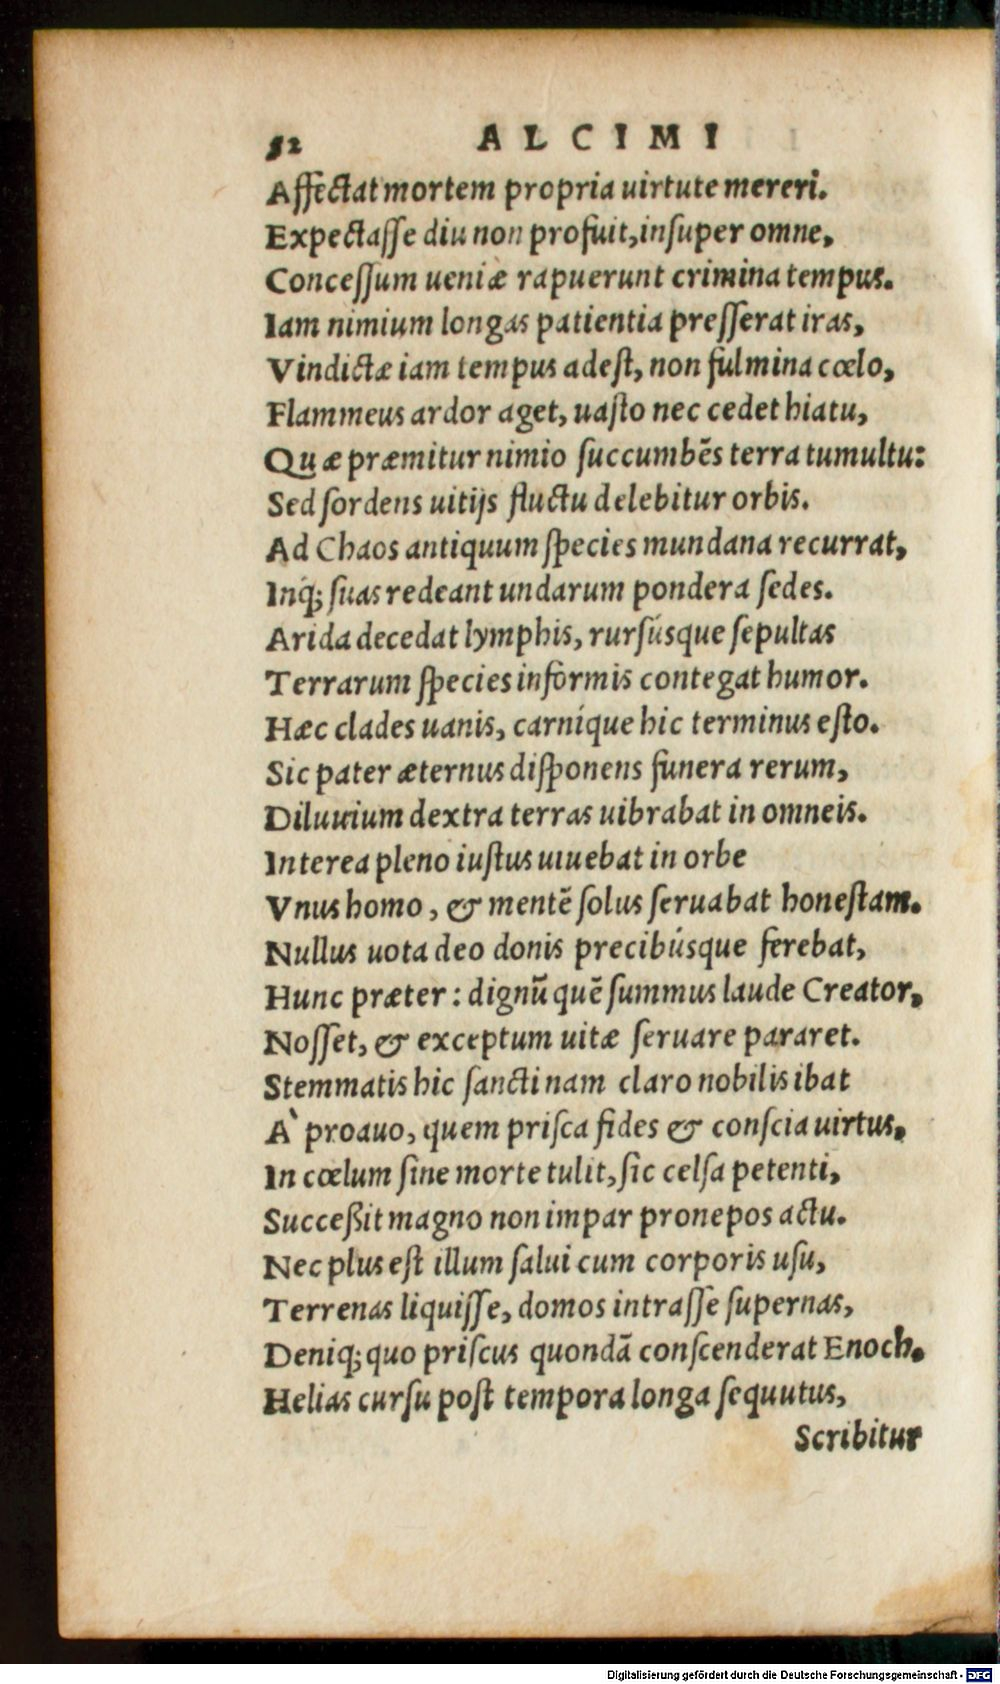 52 ALCIMI
Affectat mortem propria uirtute mereri.
Expectaſſe diu non profuit, inſuper omne,
Conceſſum ueniæ rapuerunt crimina tempus.
Iam nimium longas patientia preſſerat iras,
Vindictæ iam tempus adeſt, non fulmina cœlo,
Flammeus ardor aget, uaſto nec cedet hiatu,
Quæ præmitur nimio ſuccumbẽs terra tumultu:
Sed ſordens uitijs fluctu delebitur orbis.
Ad Chaos antiquum ſpecies mundana recurrat,
Inq; ſuas redeant undarum pondera ſedes.
Arida decedat lymphis, rurſúsque ſepultas
Terrarum ſpecies informis contegat humor.
Hæc clades uanis, carníque hic terminus eſto.
Sic pater æternus diſponens funera rerum,
Diluuium dextra terras uibrabat in omneis.
Interea pleno iuſtus uiuebat in orbe
Vnus homo, & mentẽ ſolus ſeruabat honeſtam.
Nullus uota deo donis precibúsque ferebat,
Hunc præter: dignũ quẽ ſummus laude Creator,
Noſſet, & exceptum uitæ ſeruare pararet.
Stemmatis hic ſancti nam claro nobilis ibat
À proauo, quem priſca fides & conſcia uirtus,
In cœlum ſine morte tulit, ſic celſa petenti,
Succeßit magno non impar pronepos actu.
Nec plus eſt illum ſalui cum corporis uſu,
Terrenas liquiſſe, domos intraſſe ſupernas,
Deniq; quo priſcus quondã conſcenderat Enoch.
Helias curſu poſt tempora longa ſequutus,
Scribitur
Digitalisierung gefördert durch die Deutsche Forschungsgemeinschaft - DFG